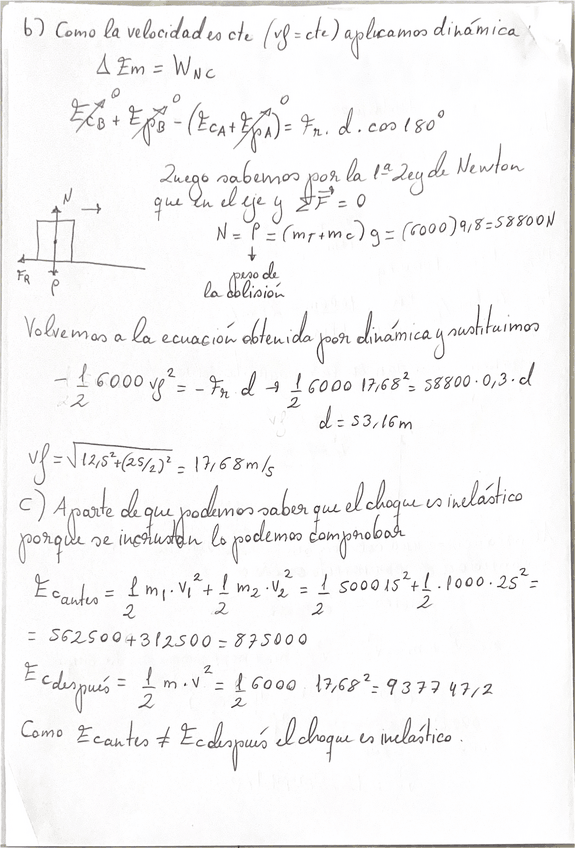 b) Como la velocidad es cte (vf = cte) aplicamos dinámica
Δ Em = W_NC
E_CB + E_PB - (E_CA + E_PA) = Fr. d. cos 180°
0 0 0
Luego sabemos por la 1ª Ley de Newton
que en el eje y ΣF = 0
N = P = (m_T + m_C) g = (6000) 9,8 = 58800 N
↓
peso de
la colisión
N →
F_R P
Volvemos a la ecuación obtenida por dinámica y sustituimos
- 1/2 6000 vf² = - Fr d → 1/2 6000 17,68² = 58800 · 0,3 · d
d = 53,16 m
vf = √(12,5² + (25/2)²) = 17,68 m/s
c) Aparte de que podemos saber que el choque es inelástico
porque se incrustan lo podemos comprobar
E_cantes = 1/2 m₁ · v₁² + 1/2 m₂ · v₂² = 1/2 5000 15² + 1/2 · 1000 · 25² =
= 562500 + 312500 = 875000
E_cdespués = 1/2 m · v² = 1/2 6000 · 17,68² = 937747,2
Como E_cantes ≠ E_cdespués el choque es inelástico.